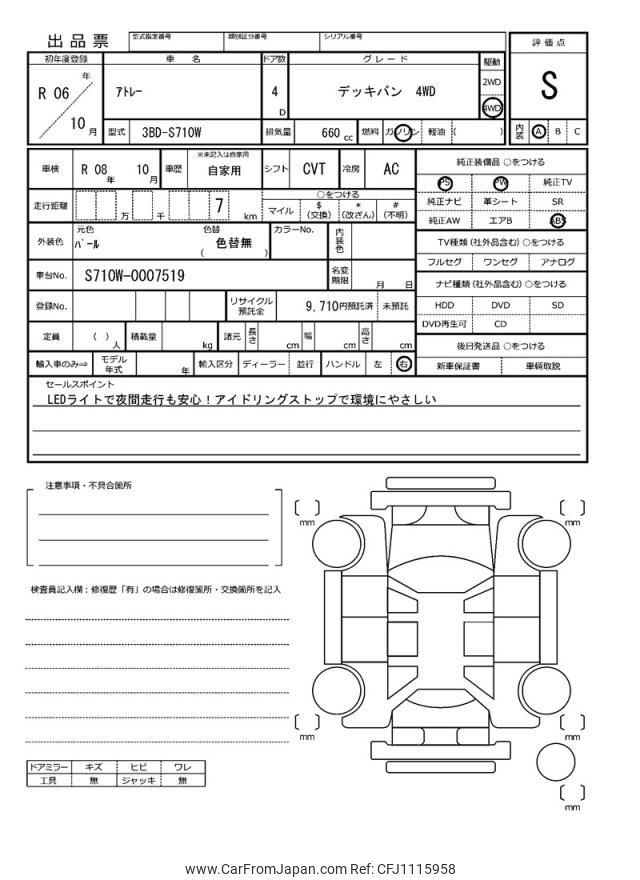 出品票
型式指定番号 類別区分番号 シリアル番号
評価点
S
内装 A B C
初年度登録 車名 ドア数 グレード 駆動
R 06 年 10 月
アトレー
4 D
デッキバン 4WD
2WD
4WD
型式 3BD-S710W 排気量 660 cc 燃料 ガソリン 軽油 ( )
車検 R 08 年 10 月 車歴 ※未記入は自家用 自家用 シフト CVT 冷房 AC
走行距離 万 千 7 km
○をつける
マイル $(交換) *(改ざん) #(不明)
外装色 元色 パール 色替 色替無 ( ) カラーNo. 内装色
車台No. S710W-0007519 名変期限 月 日
登録No. リサイクル預託金 9,710円預託済 未預託
定員 ( ) 人 積載量 kg 諸元 長さ cm 幅 cm 高さ cm
輸入車のみ⇒ モデル年式 年 輸入区分 ディーラー 並行 ハンドル 左 右
純正装備品 ○をつける
PS PW 純正TV
純正ナビ 革シート SR
純正AW エアB ABS
TV種類 (社外品含む) ○をつける
フルセグ ワンセグ アナログ
ナビ種類 (社外品含む) ○をつける
HDD DVD SD
DVD再生可 CD
後日発送品 ○をつける
新車保証書 車輌取説
セールスポイント
LEDライトで夜間走行も安心！アイドリングストップで環境にやさしい
注意事項・不具合箇所
検査員記入欄：修復歴「有」の場合は修復箇所・交換箇所を記入
ドアミラー キズ ヒビ ワレ
工具 無 ジャッキ 無
[ ] mm
[ ] mm
[ ] mm
[ ] mm
[ ] mm
www.CarFromJapan.com Ref: CFJ1115958